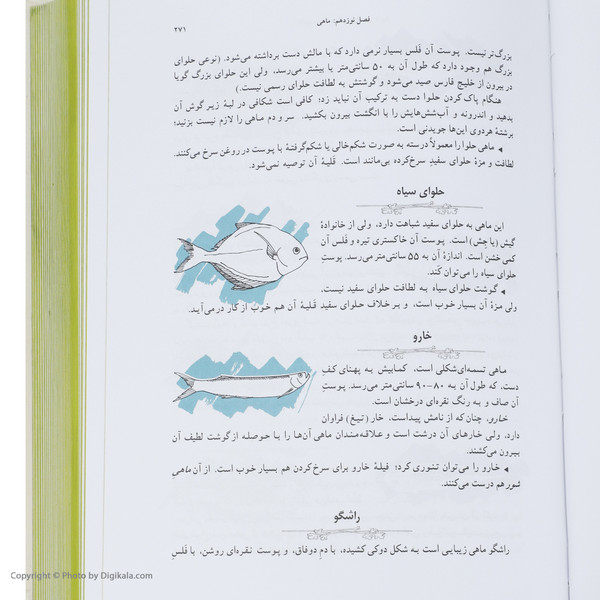 فصل نوزدهم: ماهی
۲۷۱
بزرگ‌تر نیست. پوست آن فَلس بسیار نرمی دارد که با مالش دست برداشته می‌شود. (نوعی حلوای
بزرگ هم وجود دارد که طول آن به ۵۰ سانتی‌متر یا بیشتر می‌رسد، ولی این حلوای بزرگ گویا
در بیرون از خلیج فارس صید می‌شود و گوشتش به لطافت حلوای رسمی نیست.)
هنگام پاک کردن حلوا دست به ترکیب آن نباید زد؛ کافی است شکافی در لبهٔ زیر گوش آن
بدهید و اندرونه و آب‌شش‌هایش را با انگشت بیرون بکشید. سر و دم ماهی را لازم نیست بزنید؛
برشتهٔ هردوی این‌ها جویدنی است.
◂ ماهی حلوا را معمولاً درسته به صورت شکم‌خالی یا شکم‌گرفتهٔ با پوست در روغن سرخ می‌کنند.
لطافت و مزهٔ حلوای سفیدِ سرخ‌کرده بی‌مانند است. قلیهٔ آن توصیه نمی‌شود.
حلوای سیاه
این ماهی به حلوای سفید شباهت دارد، ولی از خانوادهٔ
گیش (یا چِش) است. پوست آن خاکستری تیره و فَلس آن
کمی خشن است. اندازهٔ آن به ۵۵ سانتی‌متر می‌رسد. پوستِ
حلوای سیاه را می‌توان کَند.
◂ گوشت حلوای سیاه به لطافت حلوای سفید نیست،
ولی مزهٔ آن بسیار خوب است، و بر خلاف حلوای سفید قَلیهٔ آن هم خوب از کار در می‌آید.
خارو
ماهی تسمه‌ای‌شکلی است، کمابیش به پهنای کفِ
دست، که طول آن به ۸۰-۹۰ سانتی‌متر می‌رسد. پوستِ
آن صاف و به رنگ نقره‌ای درخشان است.
خارو، چنان‌که از نامش پیداست، خار (تیغ) فراوان
دارد، ولی خارهای آن درشت است و علاقه‌مندان ماهی آن‌ها را با حوصله از گوشت لطیف آن
بیرون می‌کشند.
◂ خارو را می‌توان تنوری کرد؛ فیلهٔ خارو برای سرخ‌کردن هم بسیار خوب است. از آن ماهی
شور هم درست می‌کنند.
راشگو
راشگو ماهی زیبایی است به شکل دوکی کشیده، با دمِ دوفاق، و پوست نقره‌ای روشن، با فَلسِ
Copyright © Photo by Digikala.com